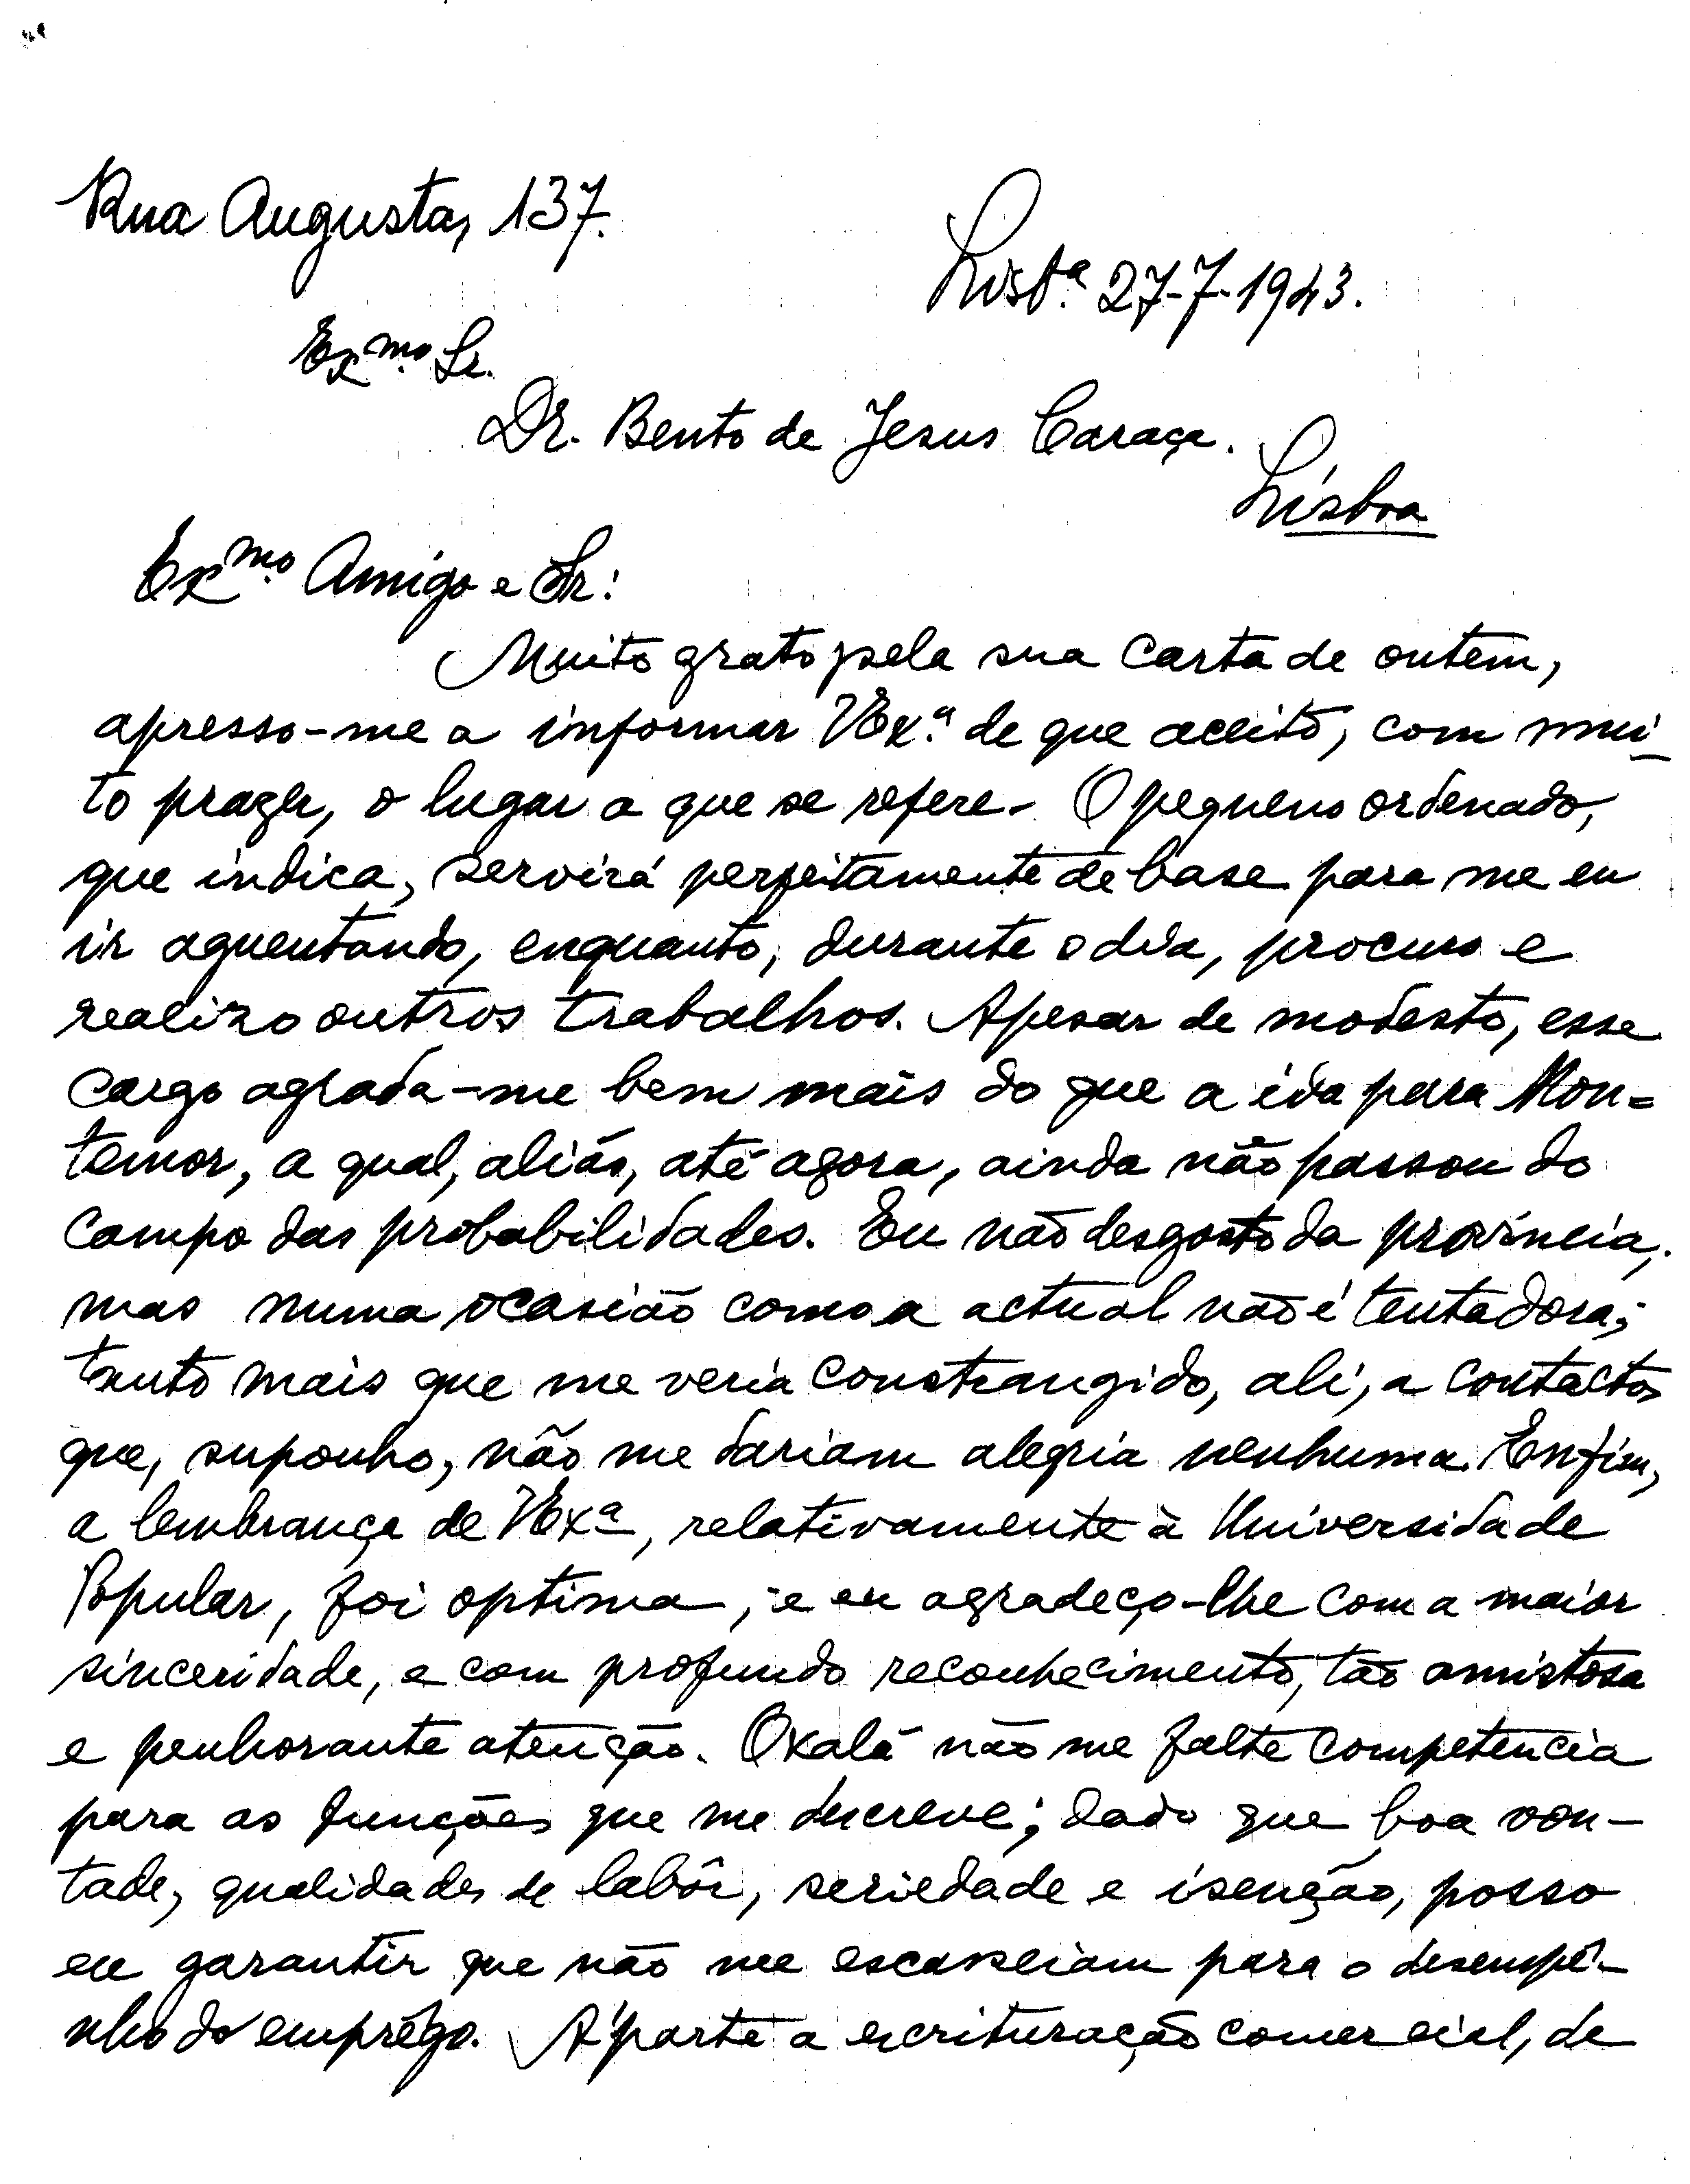 Rua Augusta, 137.
Lisbª 27-7-1943.
Exmo. Sr.
Dr. Bento de Jesus Caraça.
Lisboa
Exmo. Amigo e Sr:
Muito grato pela sua carta de ontem,
apresso-me a informar VExª de que aceito, com mui-
to prazer, o lugar a que se refere. O pequeno ordenado,
que indica, servirá perfeitamente de base para me eu
ir aguentando, enquanto, durante o dia, procuro e
realizo outros trabalhos. Apesar de modesto, esse
cargo agrada-me bem mais do que a ida para Mon=
temor, a qual, aliás, até agora, ainda não passou do
campo das probabilidades. Eu não desgosto da província,
mas numa ocasião como a actual não é tentadora;
tanto mais que me veria constrangido, ali, a contactos
que, suponho, não me dariam alegria nenhuma. Enfim,
a lembrança de VExª, relativamente à Universidade
Popular, foi optima, e eu agradeço-lhe com a maior
sinceridade, e com profundo reconhecimento, tão amistosa
e penhorante atenção. Oxalá não me falte competencia
para as funções que me descreve; dado que boa von-
tade, qualidades de labôr, seriedade e isenção, posso
eu garantir que não me escasseiam para o desempê-
nho do emprêgo. Àparte a escrituração comercial, de